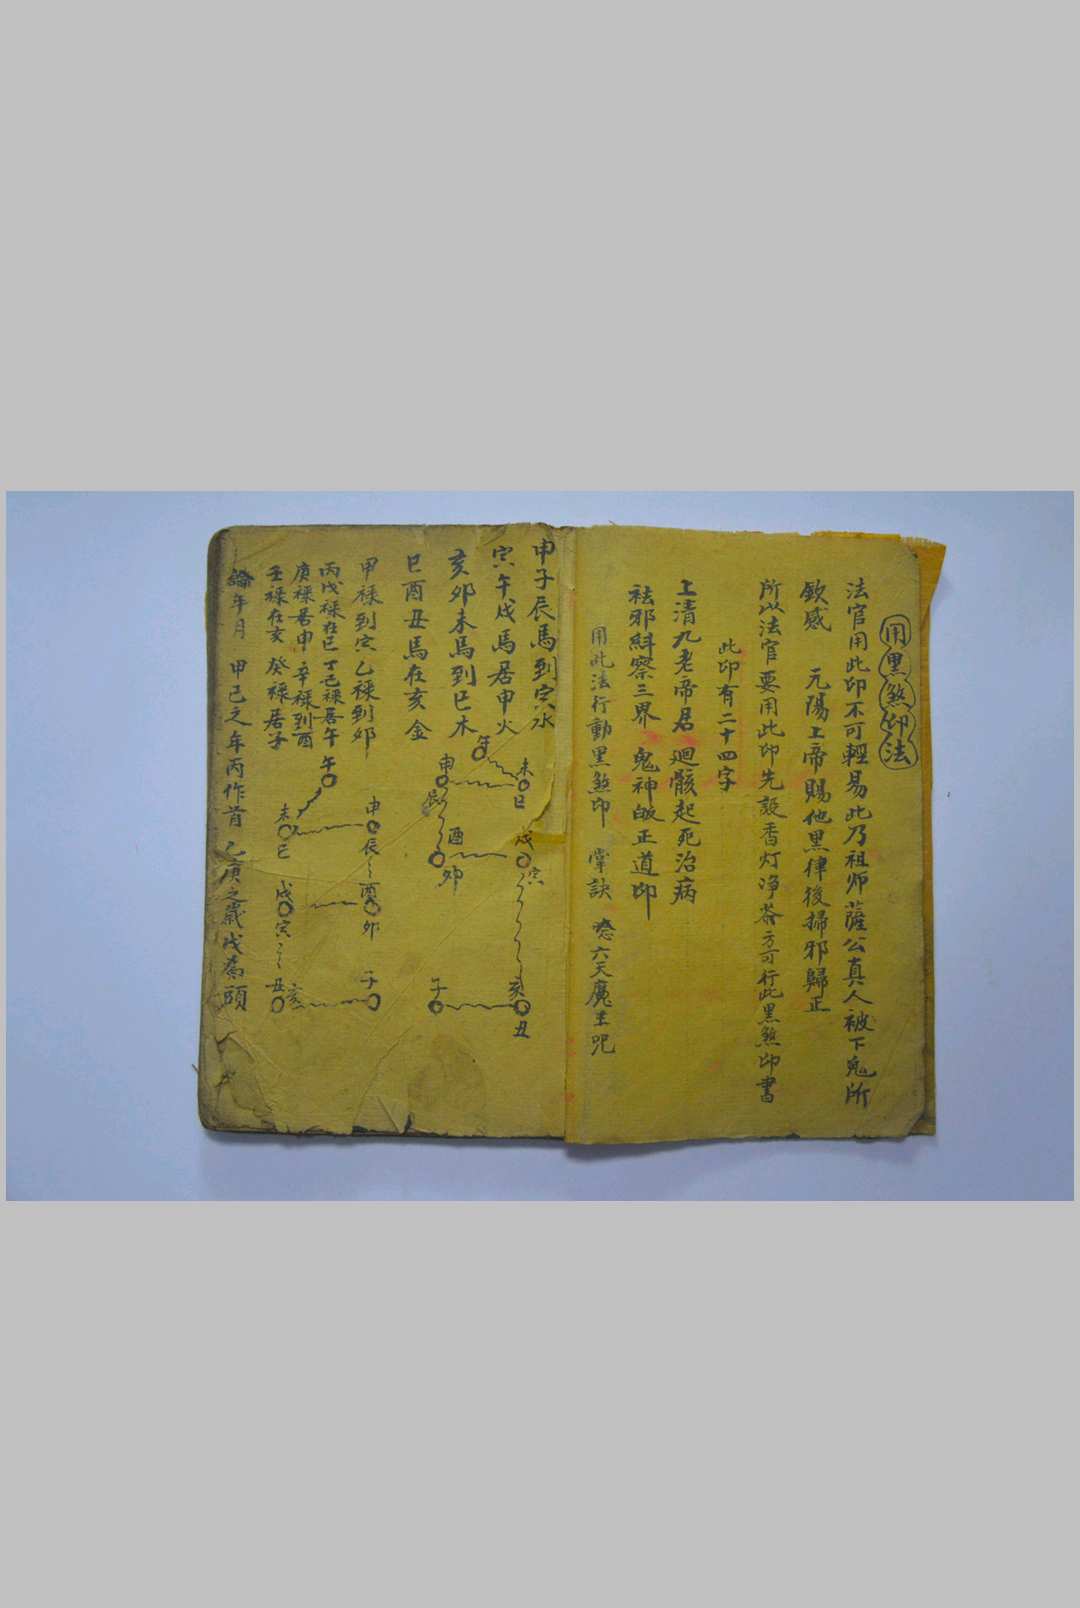 用黑煞印法
法官用此印不可輕易此乃祖师薩公真人被下鬼所
欽感 元陽上帝賜他黑律後掃邪歸正
所以法官要用此印先設香灯净茶方可行此黑煞印書
此印有二十四字
上清九老帝君 迴骸起死治病
祛邪糾察三界 鬼神皈正道印
用此法行動黑煞印 掌訣 念六天魔王咒
申子辰馬到寅水
寅午戌馬居申火
亥卯未馬到巳木
巳酉丑馬在亥 金
午
未
巳
申
辰
戌
寅
酉
卯
亥
丑
子
甲禄到寅 乙禄到卯
丙戊禄在巳 丁己禄居午
庚禄居申 辛禄到酉
壬禄在亥 癸禄居子
午
申
辰
未
巳
酉
卯
戌
寅
子
亥
丑
論年月 甲己之年丙作首 乙庚之歲戊為頭